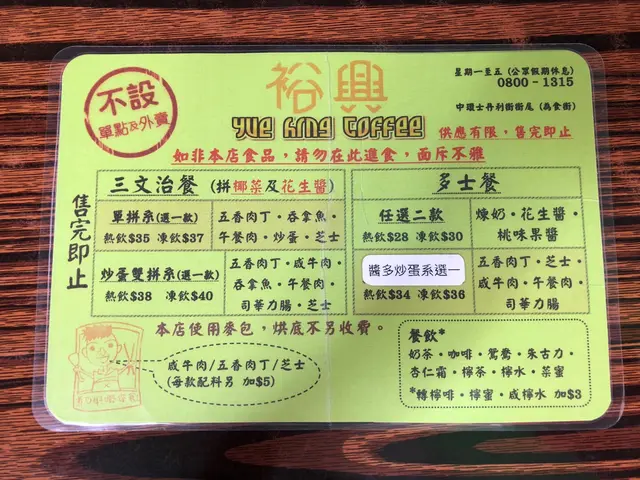 不設
單點及外賣
裕興
YUE HING COFFEE
星期一至五 (公眾假期休息)
0800 - 1315
中環士丹利街街尾 (為食街)
供應有限，售完即止
如非本店食品，請勿在此進食，面斥不雅
售完即止
三文治餐 (拼椰菜及花生醬)
單拼系(選一款)
熱飲$35 凍飲$37
五香肉丁・吞拿魚・
午餐肉・炒蛋・芝士
炒蛋雙拼系(選一款)
熱飲$38 凍飲$40
五香肉丁・咸牛肉・
吞拿魚・午餐肉・
司華力腸・芝士
多士餐
任選二款
熱飲$28 凍飲$30
煉奶・花生醬・
桃味果醬
醬多炒蛋系選一
熱飲$34 凍飲$36
五香肉丁・芝士・
咸牛肉・午餐肉・
司華力腸
本店使用麥包，烘底不另收費。
咸牛肉/五香肉丁/芝士
(每款配料另 加$5)
餐飲*
奶茶・咖啡・鴛鴦・朱古力・
杏仁霜・檸茶・檸水・菜蜜
*檸啡・檸蜜・咸檸水 加$3